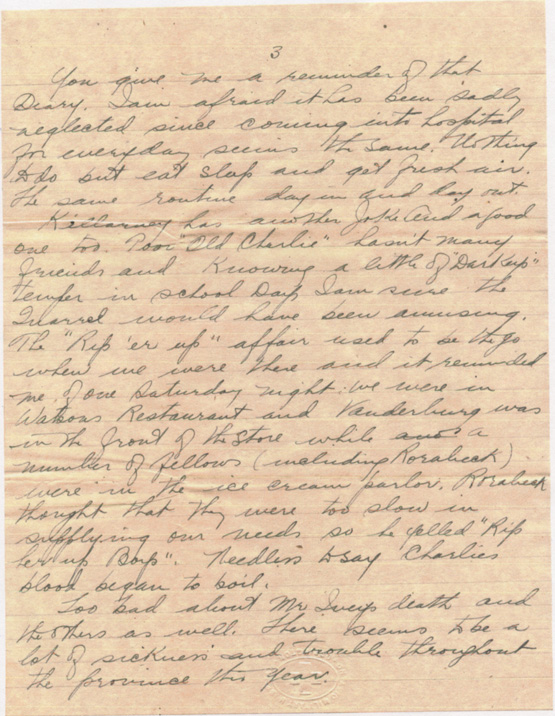 3
You give me a reminder of that
Diary. I am afraid it has been sadly
neglected since coming into hospital
for everyday seems the same. Nothing
to do but eat sleep and get fresh air.
The same routine day in and day out.
Killarney has another joke and a good
one too. Poor "Old Charlie" hasn't many
friends and knowing a little of "Darkeys"
temper in school Days I am sure the
Quarrel would have been amusing.
The "Rip 'er up" affair used to be the go
when we were there and it reminded
me of one Saturday night. we were in
Watsons Restaurant and Vanderburg was
in the front of the store while a
number of fellows (including Rorabeck)
were in the ice cream parlor. Rorabeck
thought that they were too slow in
supplying our needs so he yelled "Rip
her up Boys". Needless to say Charlies
blood began to boil.
Too bad about Mr Iveys death and
the others as well. There seems to be a
lot of sickness and trouble throughout
the province this year.